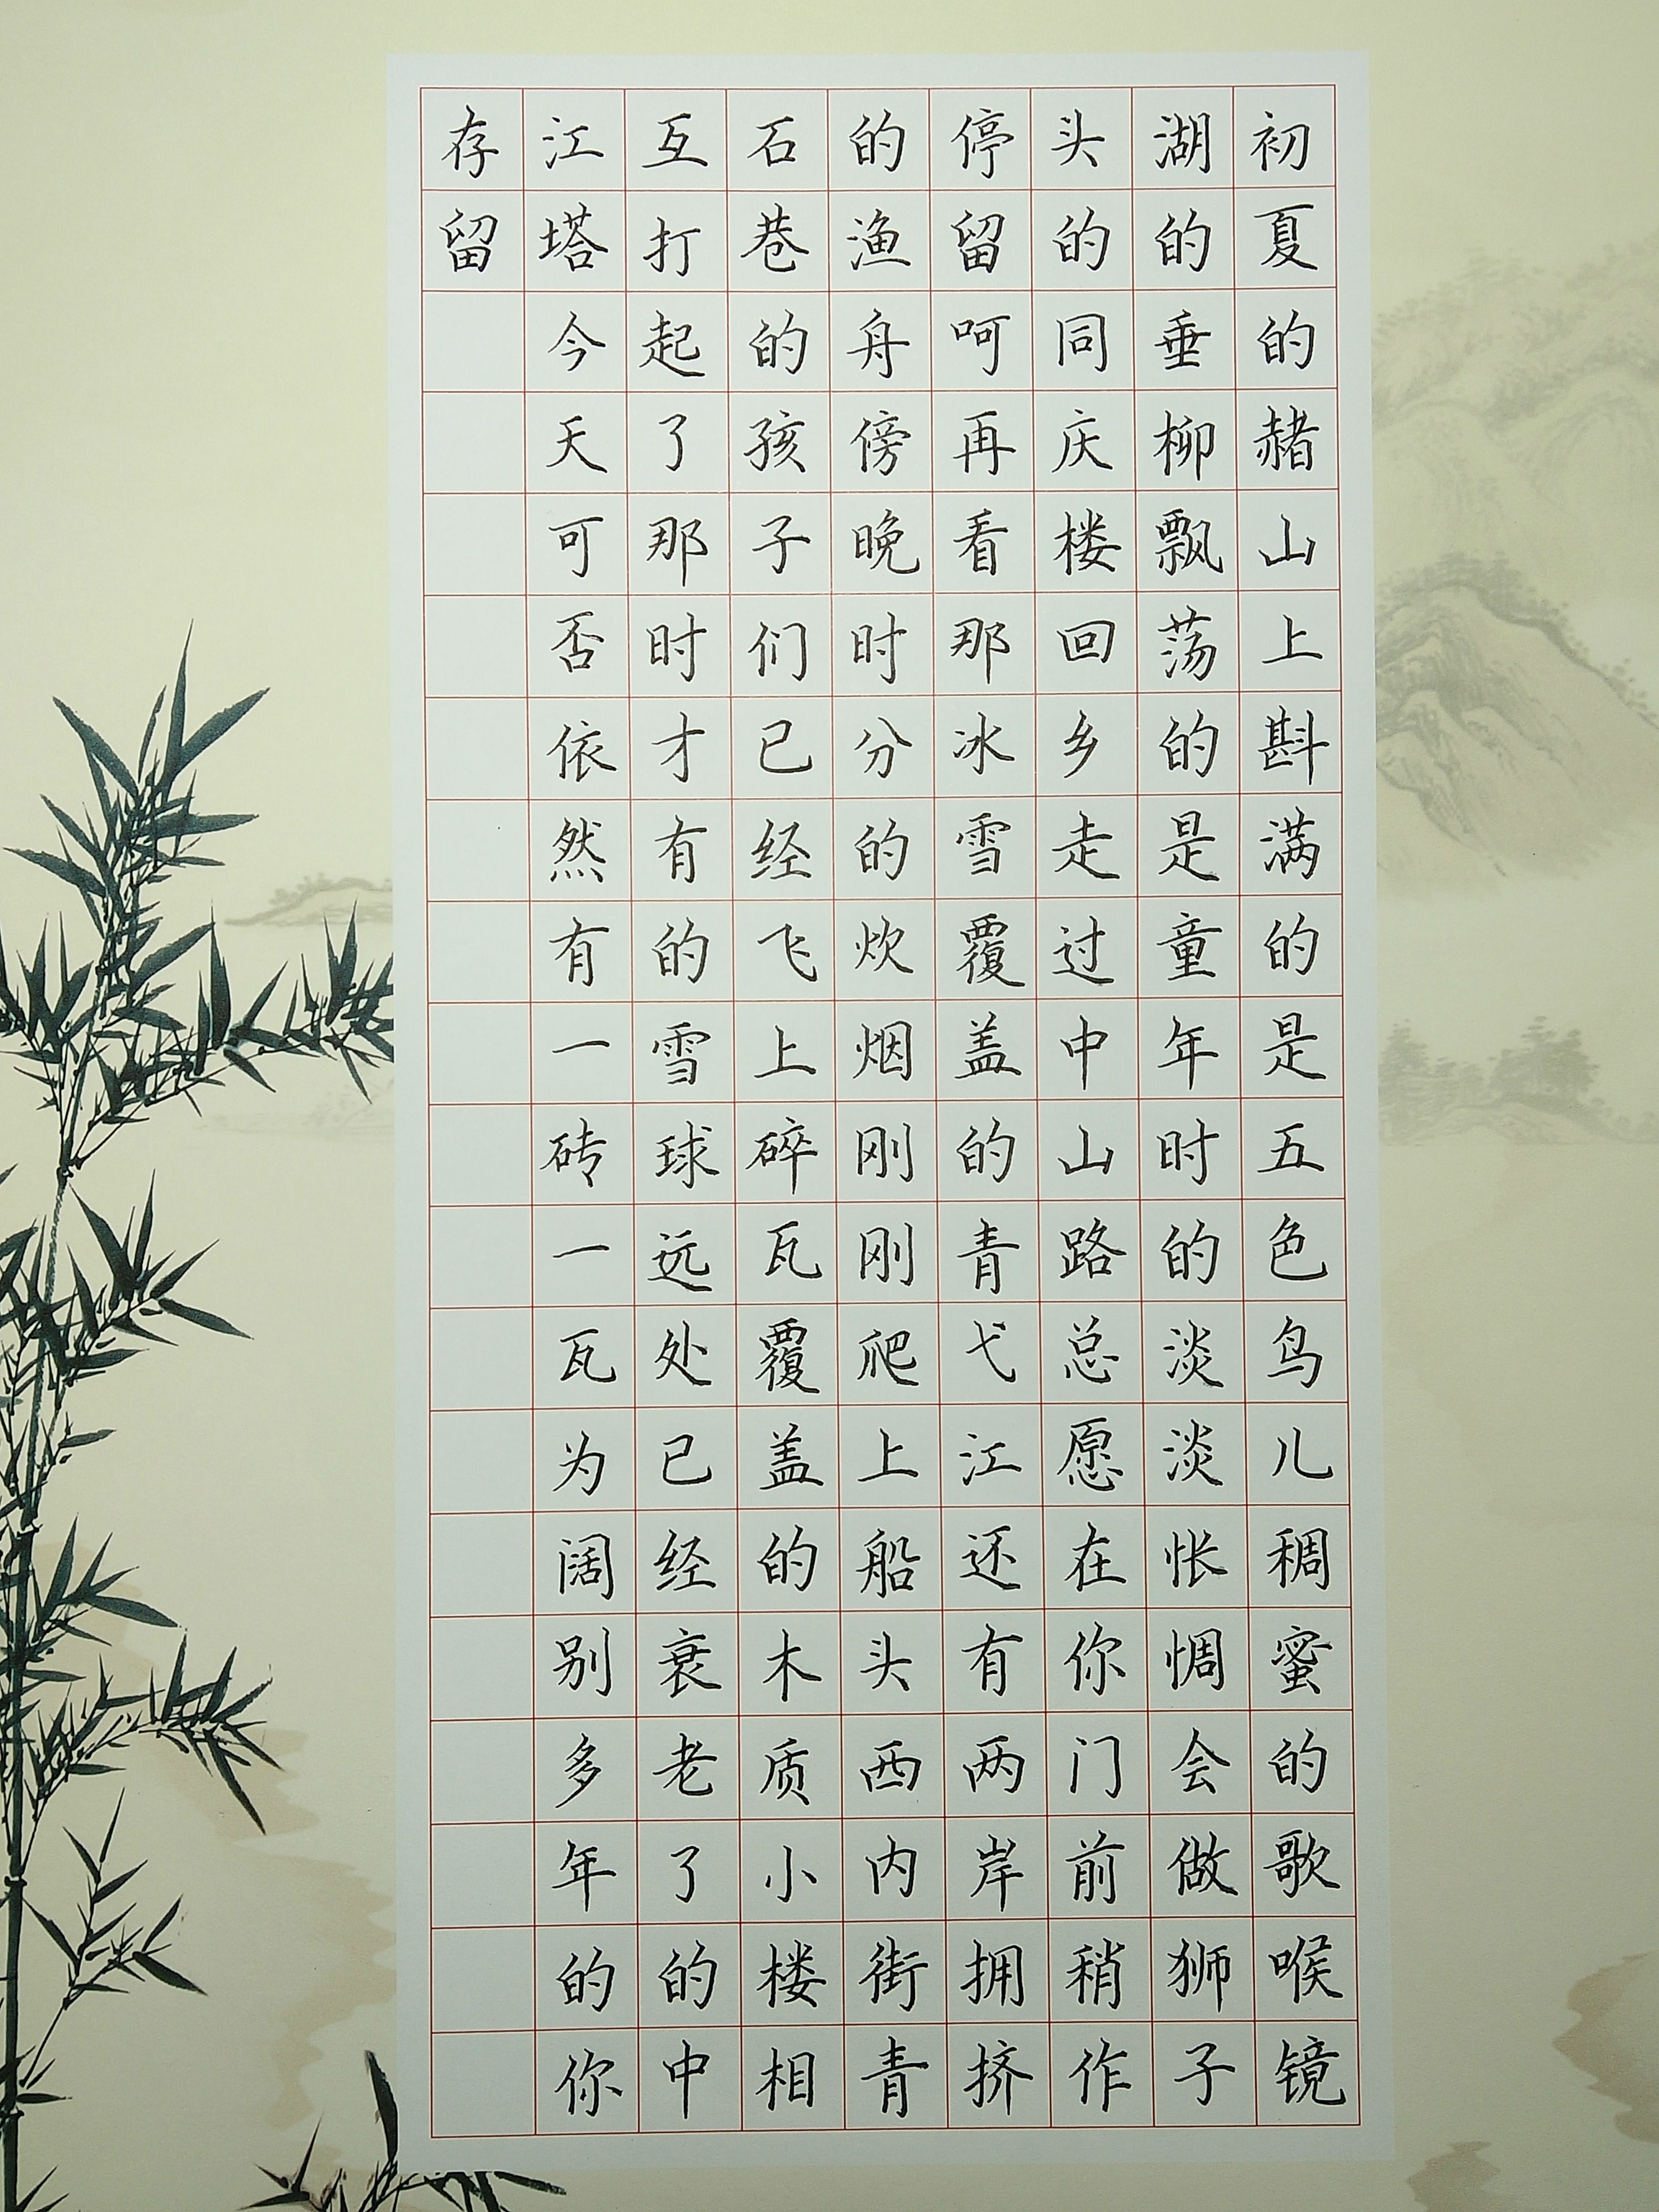 初夏的赭山上斟满的是五色鸟儿稠蜜的歌喉镜
湖的垂柳飘荡的是童年时的淡淡怅惆会做狮子
头的同庆楼回乡走过中山路总愿在你门前稍作
停留呵再看那冰雪覆盖的青弋江还有两岸拥挤
的渔舟傍晚时分的炊烟刚刚爬上船头西内街青
石巷的孩子们已经飞上碎瓦覆盖的木质小楼相
互打起了那时才有的雪球远处已经衰老了的中
江塔今天可否依然有一砖一瓦为阔别多年的你
存留